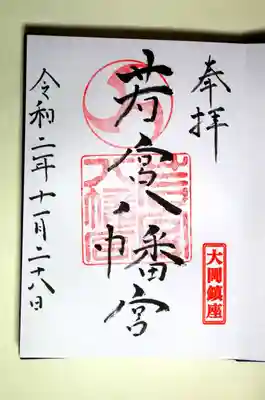 奉拝
若宮八幡宮
大開鎮座
令和二年十一月二十八日